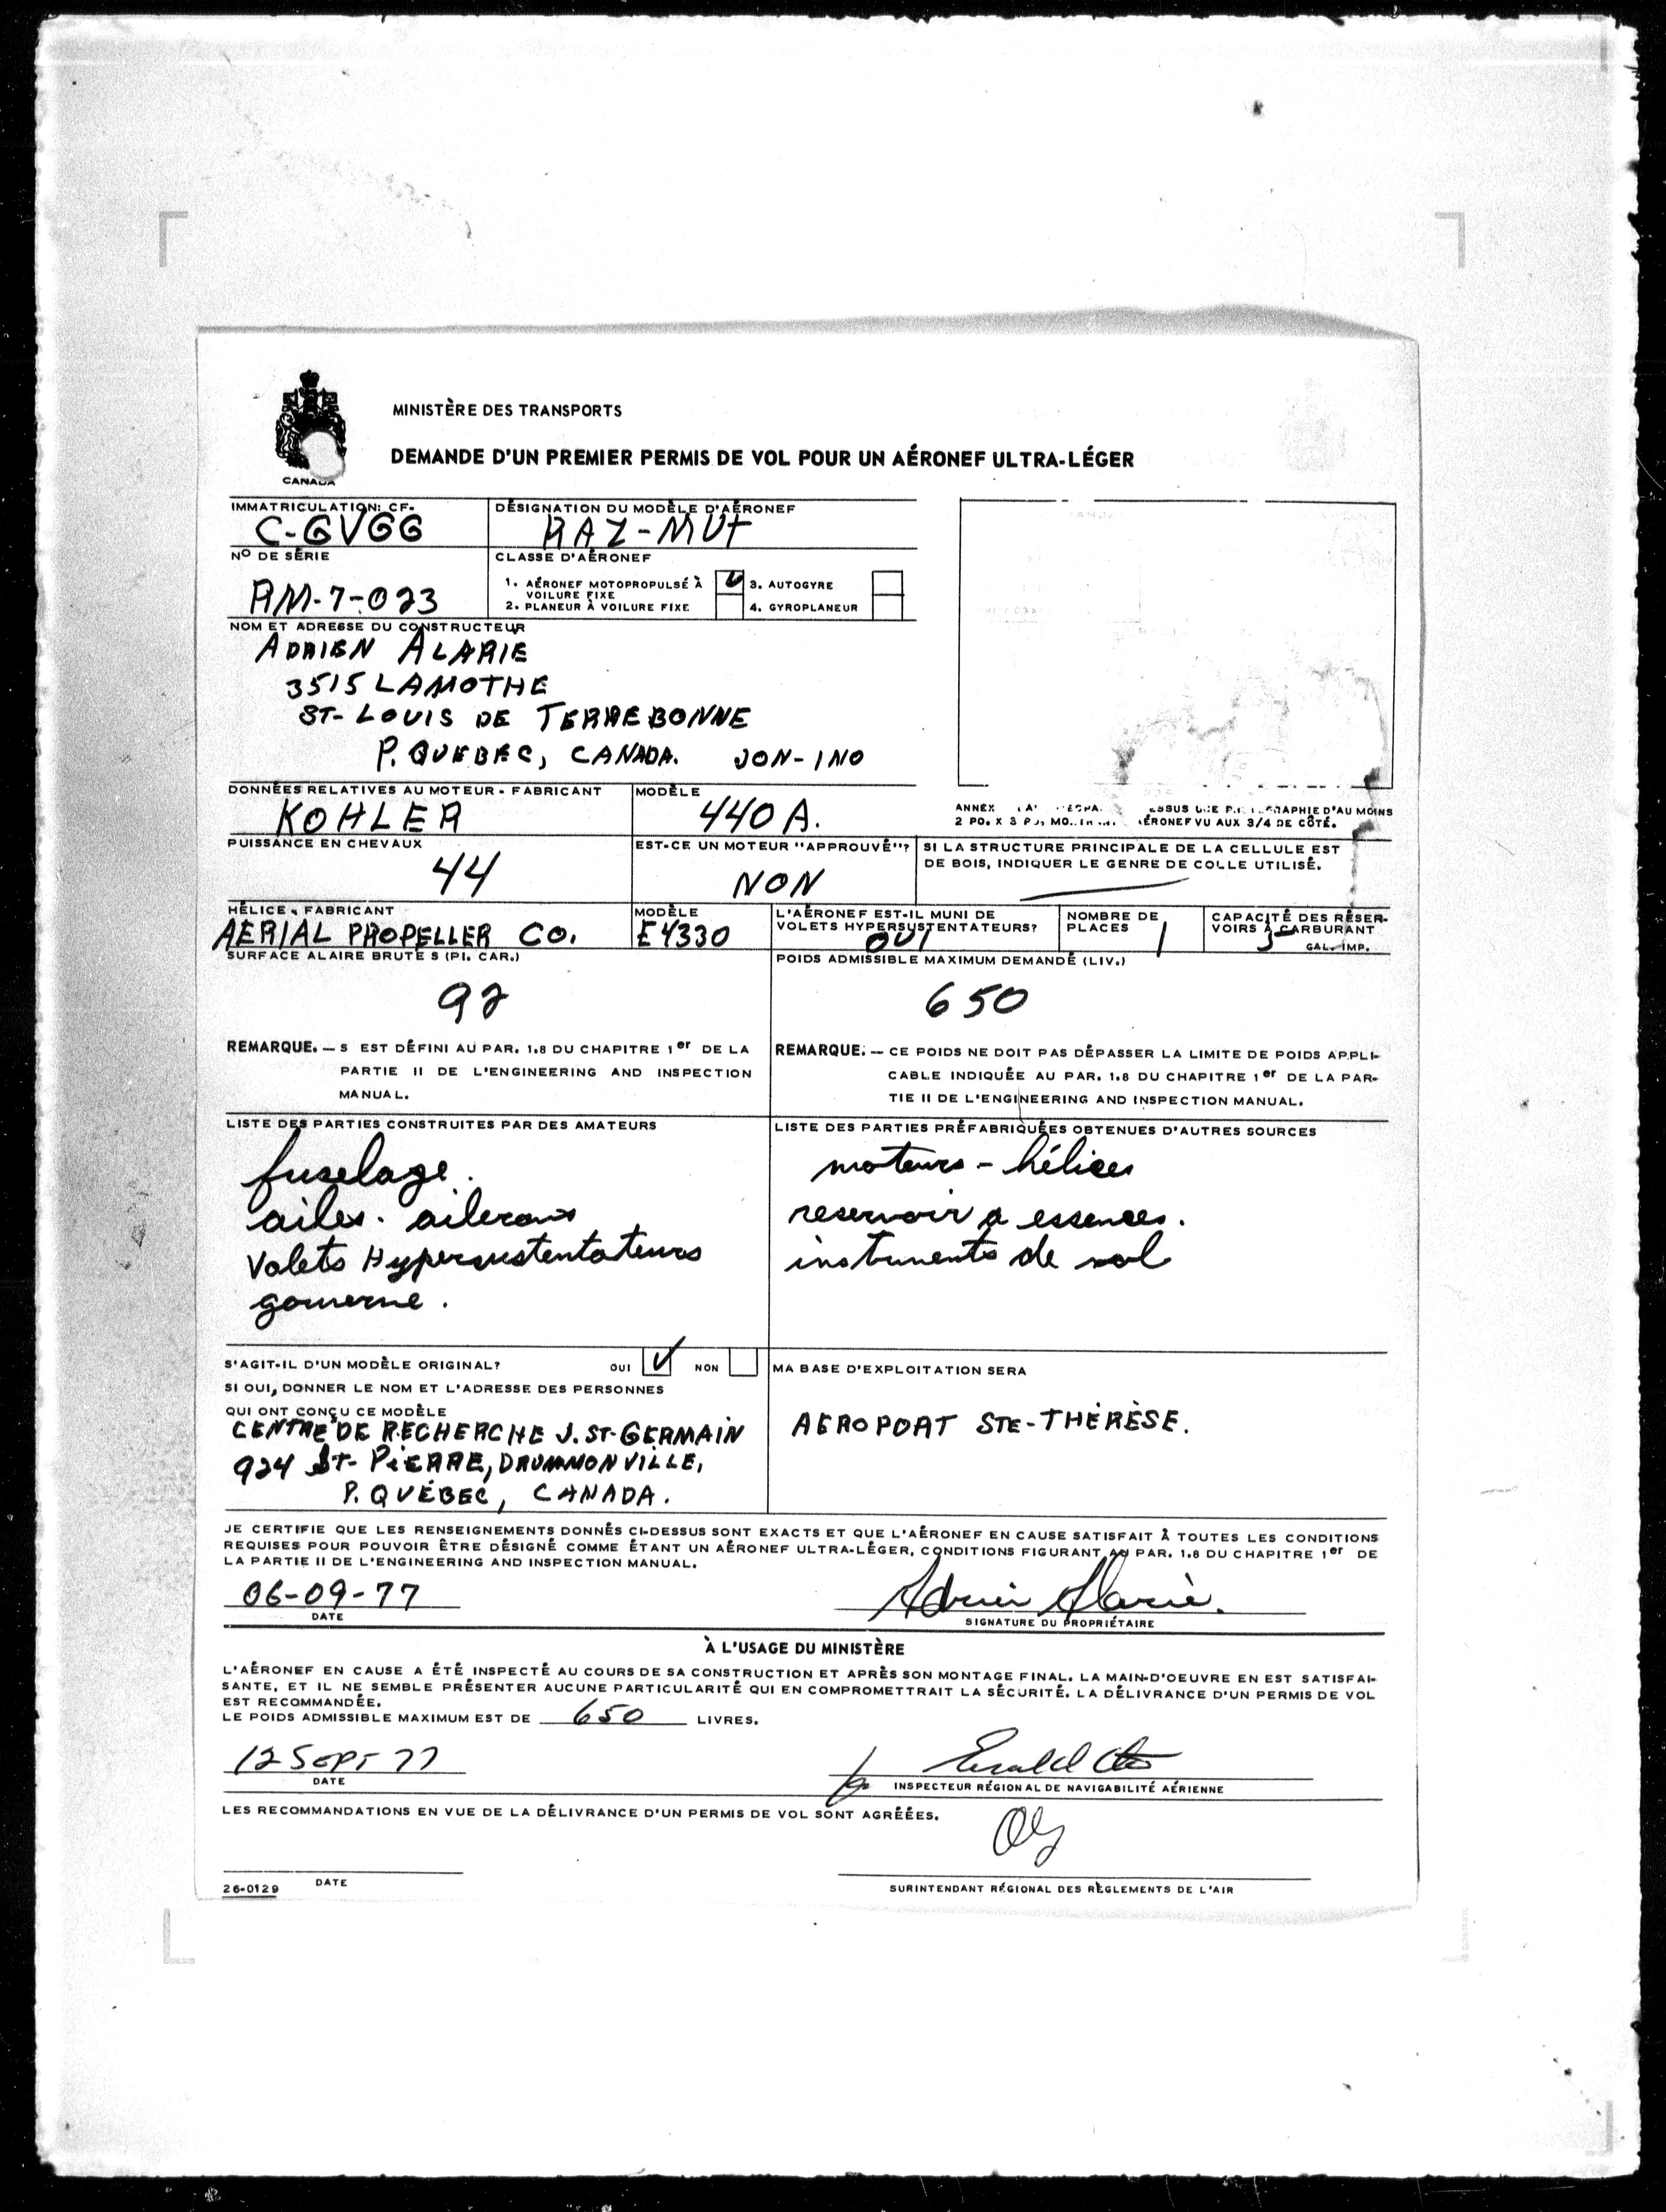 MINISTÈRE DES TRANSPORTS
DEMANDE D'UN PREMIER PERMIS DE VOL POUR UN AÉRONEF ULTRA-LÉGER
CANADA
IMMATRICULATION: CF-
C-GVGG
DÉSIGNATION DU MODÈLE D'AÉRONEF
RAZ-MUT
NO DE SÉRIE
RM-7-023
CLASSE D'AÉRONEF
1. AÉRONEF MOTOPROPULSÉ À VOILURE FIXE
3. AUTOGYRE
2. PLANEUR À VOILURE FIXE
4. GYROPLANEUR
NOM ET ADRESSE DU CONSTRUCTEUR
ADRIEN ALARIE
3515 LAMOTHE
ST-LOUIS DE TERREBONNE
P. QUEBEC, CANADA. JON-1NO
DONNÉES RELATIVES AU MOTEUR - FABRICANT
KOHLER
MODÈLE
440 A.
2 PO. X 3 PO. AÉRONEF VU AUX 3/4 DE CÔTÉ.
PUISSANCE EN CHEVAUX
44
EST-CE UN MOTEUR "APPROUVÉ"?
NON
SI LA STRUCTURE PRINCIPALE DE LA CELLULE EST
DE BOIS, INDIQUER LE GENRE DE COLLE UTILISÉ.
HÉLICE - FABRICANT
AERIAL PROPELLER CO.
MODÈLE
E4330
L'AÉRONEF EST-IL MUNI DE
VOLETS HYPERSUSTENTATEURS?
OUI
NOMBRE DE
PLACES
1
CAPACITÉ DES RÉSER-
VOIRS À CARBURANT
5
GAL. IMP.
SURFACE ALAIRE BRUTE S (PI. CAR.)
92
POIDS ADMISSIBLE MAXIMUM DEMANDÉ (LIV.)
650
REMARQUE. — S EST DÉFINI AU PAR. 1.8 DU CHAPITRE 1er DE LA
PARTIE II DE L'ENGINEERING AND INSPECTION
MANUAL.
REMARQUE: — CE POIDS NE DOIT PAS DÉPASSER LA LIMITE DE POIDS APPLI-
CABLE INDIQUÉE AU PAR. 1.8 DU CHAPITRE 1er DE LA PAR-
TIE II DE L'ENGINEERING AND INSPECTION MANUAL.
LISTE DES PARTIES CONSTRUITES PAR DES AMATEURS
fuselage.
ailes. ailerons
Volets Hypersustentateurs
gouverne.
LISTE DES PARTIES PRÉFABRIQUÉES OBTENUES D'AUTRES SOURCES
moteurs - hélices
reservoir a essences.
instruments de vol
S'AGIT-IL D'UN MODÈLE ORIGINAL? OUI NON
SI OUI, DONNER LE NOM ET L'ADRESSE DES PERSONNES
QUI ONT CONÇU CE MODÈLE
CENTRE DE RECHERCHE J. ST-GERMAIN
924 ST-PIERRE, DRUMMONVILLE,
P. QUÉBEC, CANADA.
MA BASE D'EXPLOITATION SERA
AEROPORT STE-THÉRÈSE.
JE CERTIFIE QUE LES RENSEIGNEMENTS DONNÉS CI-DESSUS SONT EXACTS ET QUE L'AÉRONEF EN CAUSE SATISFAIT À TOUTES LES CONDITIONS
REQUISES POUR POUVOIR ÊTRE DÉSIGNÉ COMME ÉTANT UN AÉRONEF ULTRA-LÉGER, CONDITIONS FIGURANT AU PAR. 1.8 DU CHAPITRE 1er DE
LA PARTIE II DE L'ENGINEERING AND INSPECTION MANUAL.
06-09-77
DATE
Adrien Alarie.
SIGNATURE DU PROPRIÉTAIRE
À L'USAGE DU MINISTÈRE
L'AÉRONEF EN CAUSE A ÉTÉ INSPECTÉ AU COURS DE SA CONSTRUCTION ET APRÈS SON MONTAGE FINAL. LA MAIN-D'OEUVRE EN EST SATISFAI-
SANTE, ET IL NE SEMBLE PRÉSENTER AUCUNE PARTICULARITÉ QUI EN COMPROMETTRAIT LA SÉCURITÉ. LA DÉLIVRANCE D'UN PERMIS DE VOL
EST RECOMMANDÉE.
LE POIDS ADMISSIBLE MAXIMUM EST DE 650 LIVRES.
12 SEPT 77
DATE
INSPECTEUR RÉGIONAL DE NAVIGABILITÉ AÉRIENNE
LES RECOMMANDATIONS EN VUE DE LA DÉLIVRANCE D'UN PERMIS DE VOL SONT AGRÉÉES.
DATE
SURINTENDANT RÉGIONAL DES RÈGLEMENTS DE L'AIR
26-0129